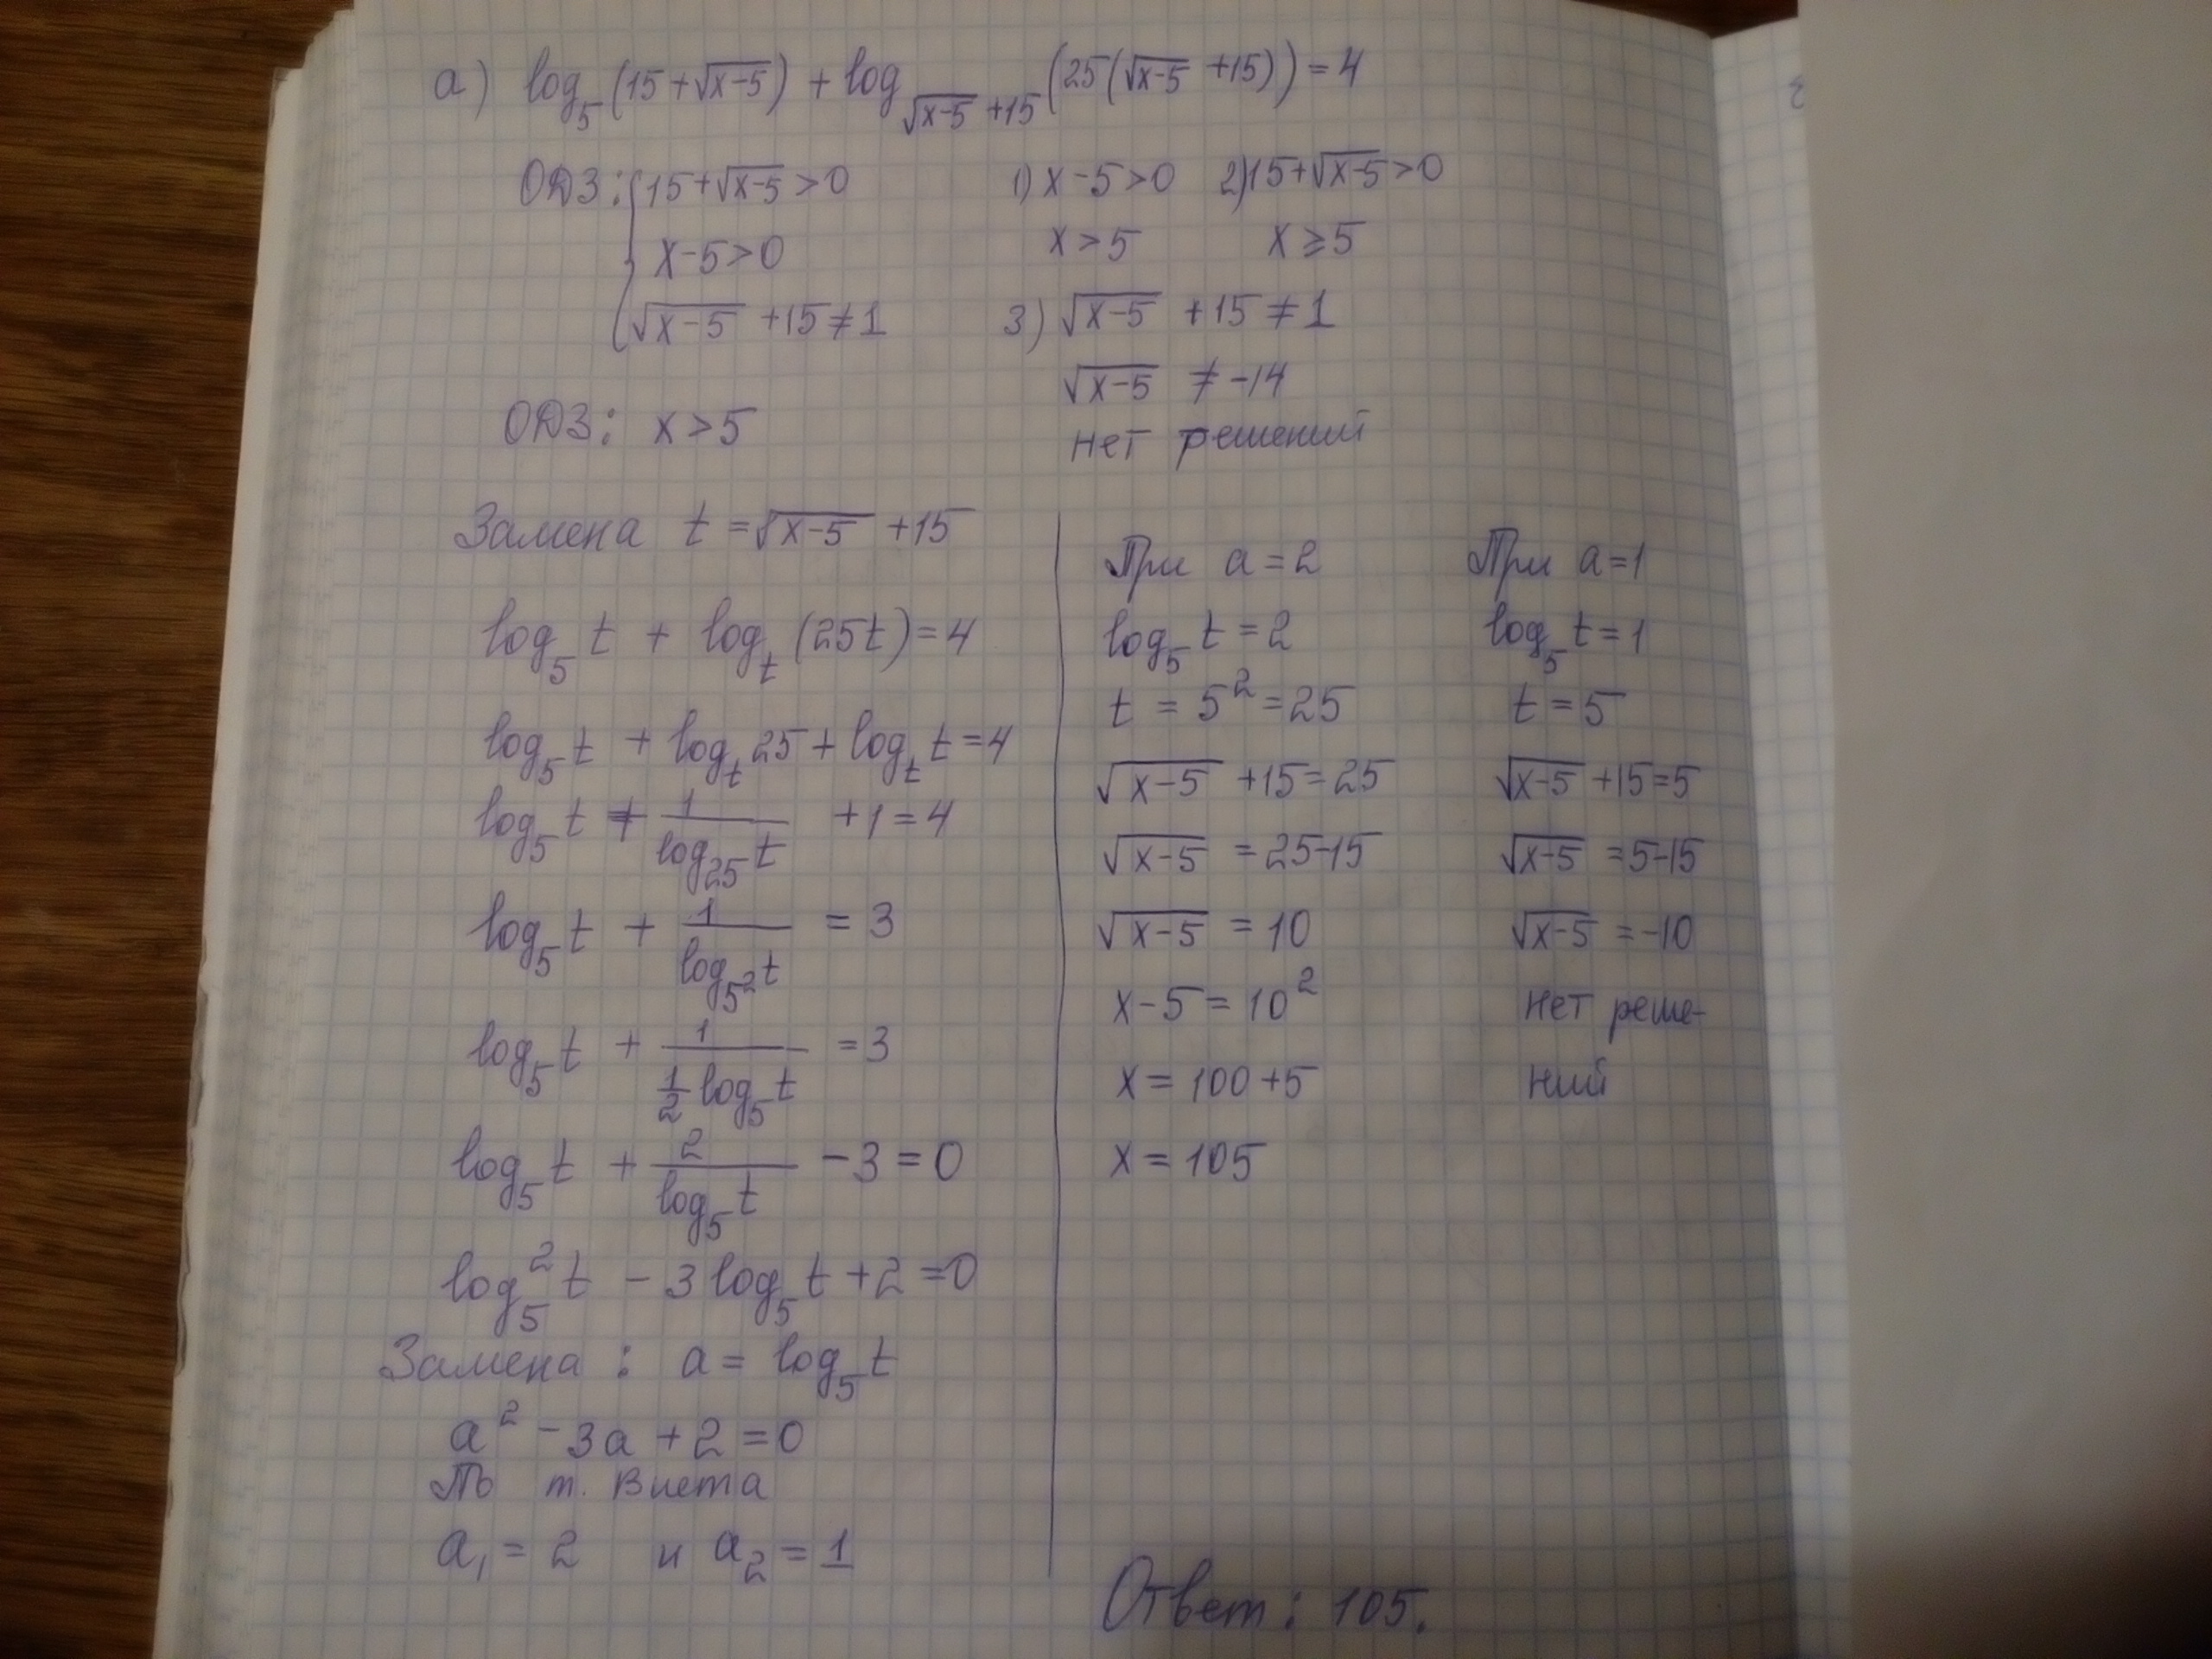 а) log₅(15+√(x-5)) + log_{√(x-5)+15}(25(√(x-5)+15)) = 4
ОДЗ: { 15+√(x-5) > 0
x-5 > 0
√(x-5) +15 ≠ 1
1) x-5 > 0
x > 5
2) 15+√(x-5) > 0
x ≥ 5
3) √(x-5) +15 ≠ 1
√(x-5) ≠ -14
нет решений
ОДЗ: x > 5
Замена t = √(x-5) +15
log₅ t + log_t (25t) = 4
log₅ t + log_t 25 + log_t t = 4
log₅ t + 1/(log₂₅ t) + 1 = 4
log₅ t + 1/(log_{5²} t) = 3
log₅ t + 1/(½ log₅ t) = 3
log₅ t + 2/(log₅ t) - 3 = 0
log₅² t - 3 log₅ t + 2 = 0
Замена: a = log₅ t
a² - 3a + 2 = 0
По т. Виета
a₁ = 2 и a₂ = 1
При a = 2
log₅ t = 2
t = 5² = 25
√(x-5) +15 = 25
√(x-5) = 25-15
√(x-5) = 10
x-5 = 10²
x = 100+5
x = 105
При a = 1
log₅ t = 1
t = 5
√(x-5) +15 = 5
√(x-5) = 5-15
√(x-5) = -10
нет реше-
ний
Ответ: 105.